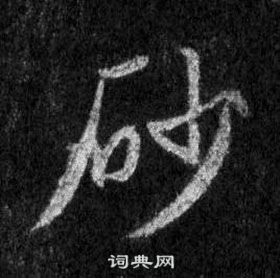 砂
词典网